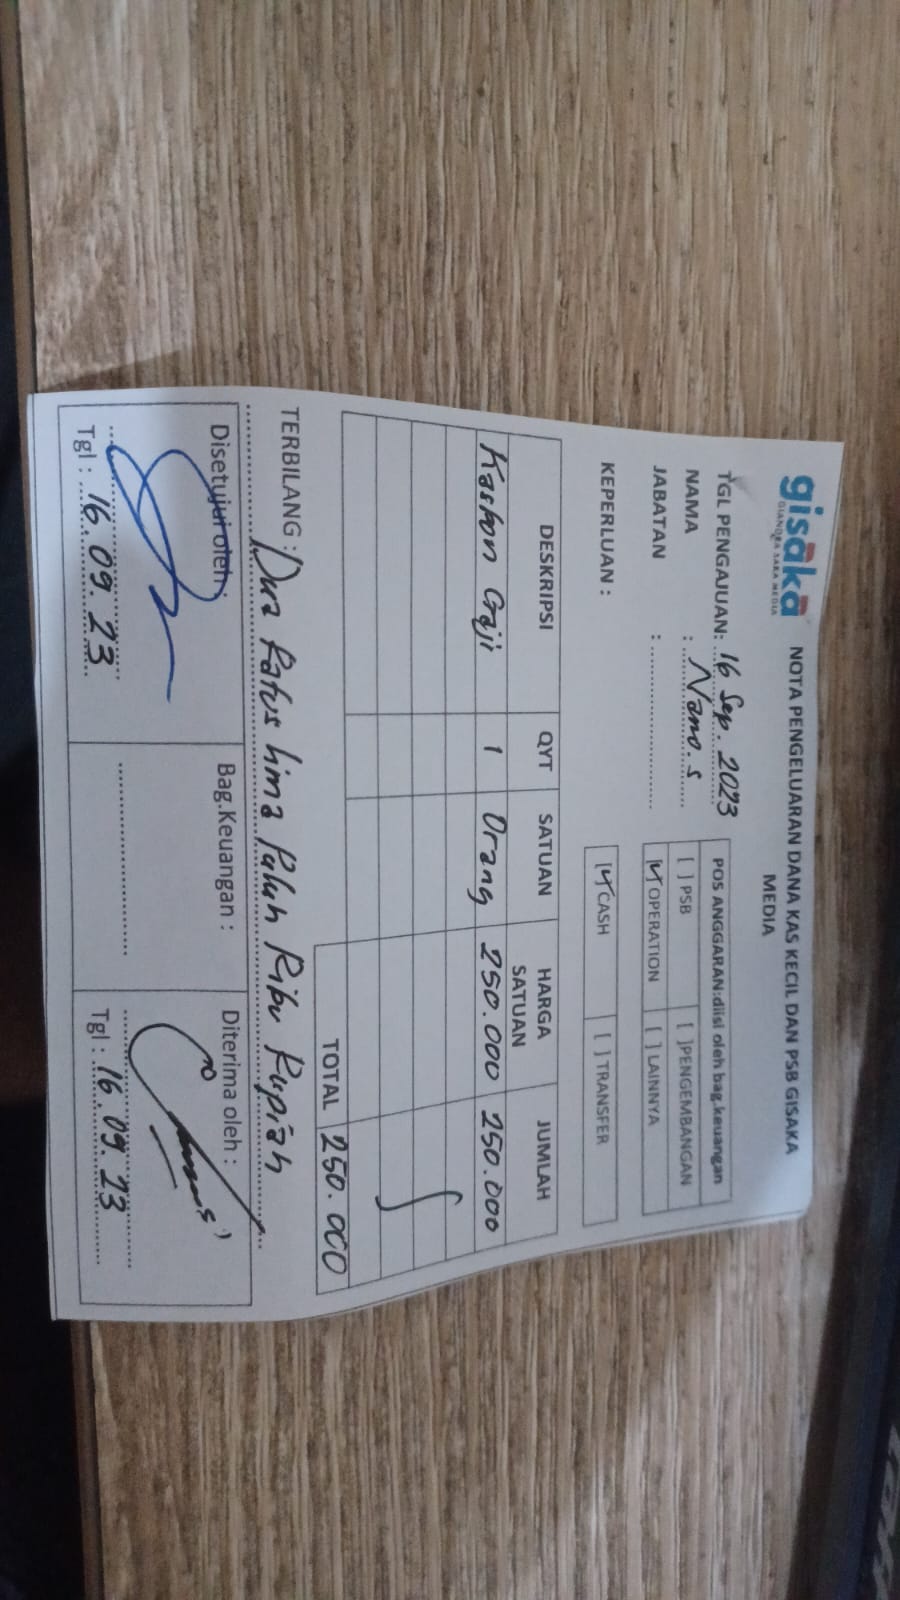 gisaka
GIANDRA SAKA MEDIA
NOTA PENGELUARAN DANA KAS KECIL DAN PSB GISAKA
MEDIA
TGL PENGAJUAN: 16 Sep. 2023
NAMA : Nano. S
JABATAN :
KEPERLUAN :
POS ANGGARAN:diisi oleh bag.keuangan
[ ] PSB [ ]PENGEMBANGAN
[✓] OPERATION [ ] LAINNYA
[✓] CASH [ ] TRANSFER
DESKRIPSI QYT SATUAN HARGA SATUAN JUMLAH
Kasbon Gaji 1 Orang 250.000 250.000
TOTAL 250.000
TERBILANG : Dua Ratus lima Puluh Ribu Rupiah
Disetujui oleh : Bag.Keuangan : Diterima oleh :
Tgl : 16. 09. 23 Tgl : 16. 09. 23